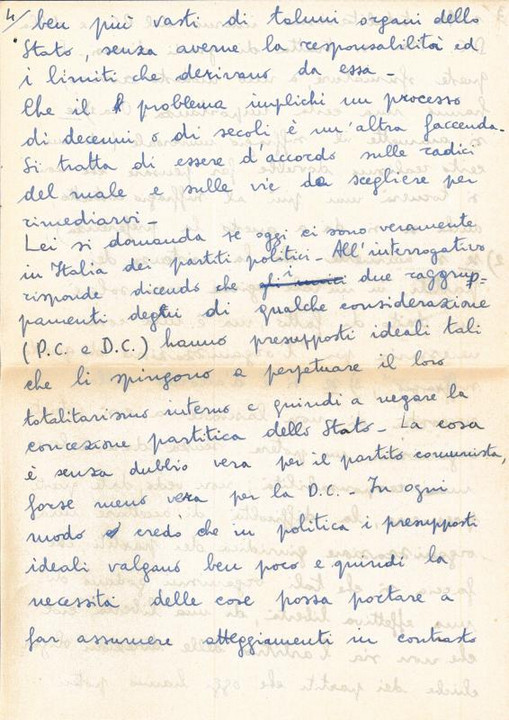 4/
ben più vasti di taluni organi dello
Stato, senza averne la responsabilità ed
i limiti che derivano da essa -
Che il problema implichi un processo
di decenni o di secoli è un'altra faccenda.
Si tratta di essere d'accordo sulle radici
del male e sulle vie da scegliere per
rimediarvi -
Lei si domanda se oggi ci sono veramente
in Italia dei partiti politici - All'interrogativo
risponde dicendo che gli unici i due raggrup-
pamenti degni di qualche considerazione
(P.C. e D.C.) hanno presupposti ideali tali
che li spingono a perpetuare il loro
totalitarismo interno e quindi a negare la
concezione partitica dello Stato - La cosa
è senza dubbio vera per il partito comunista,
forse meno vera per la D.C. - In ogni
modo credo che in politica i presupposti
ideali valgano ben poco e quindi la
necessità delle cose possa portare a
far assumere atteggiamenti in contrasto